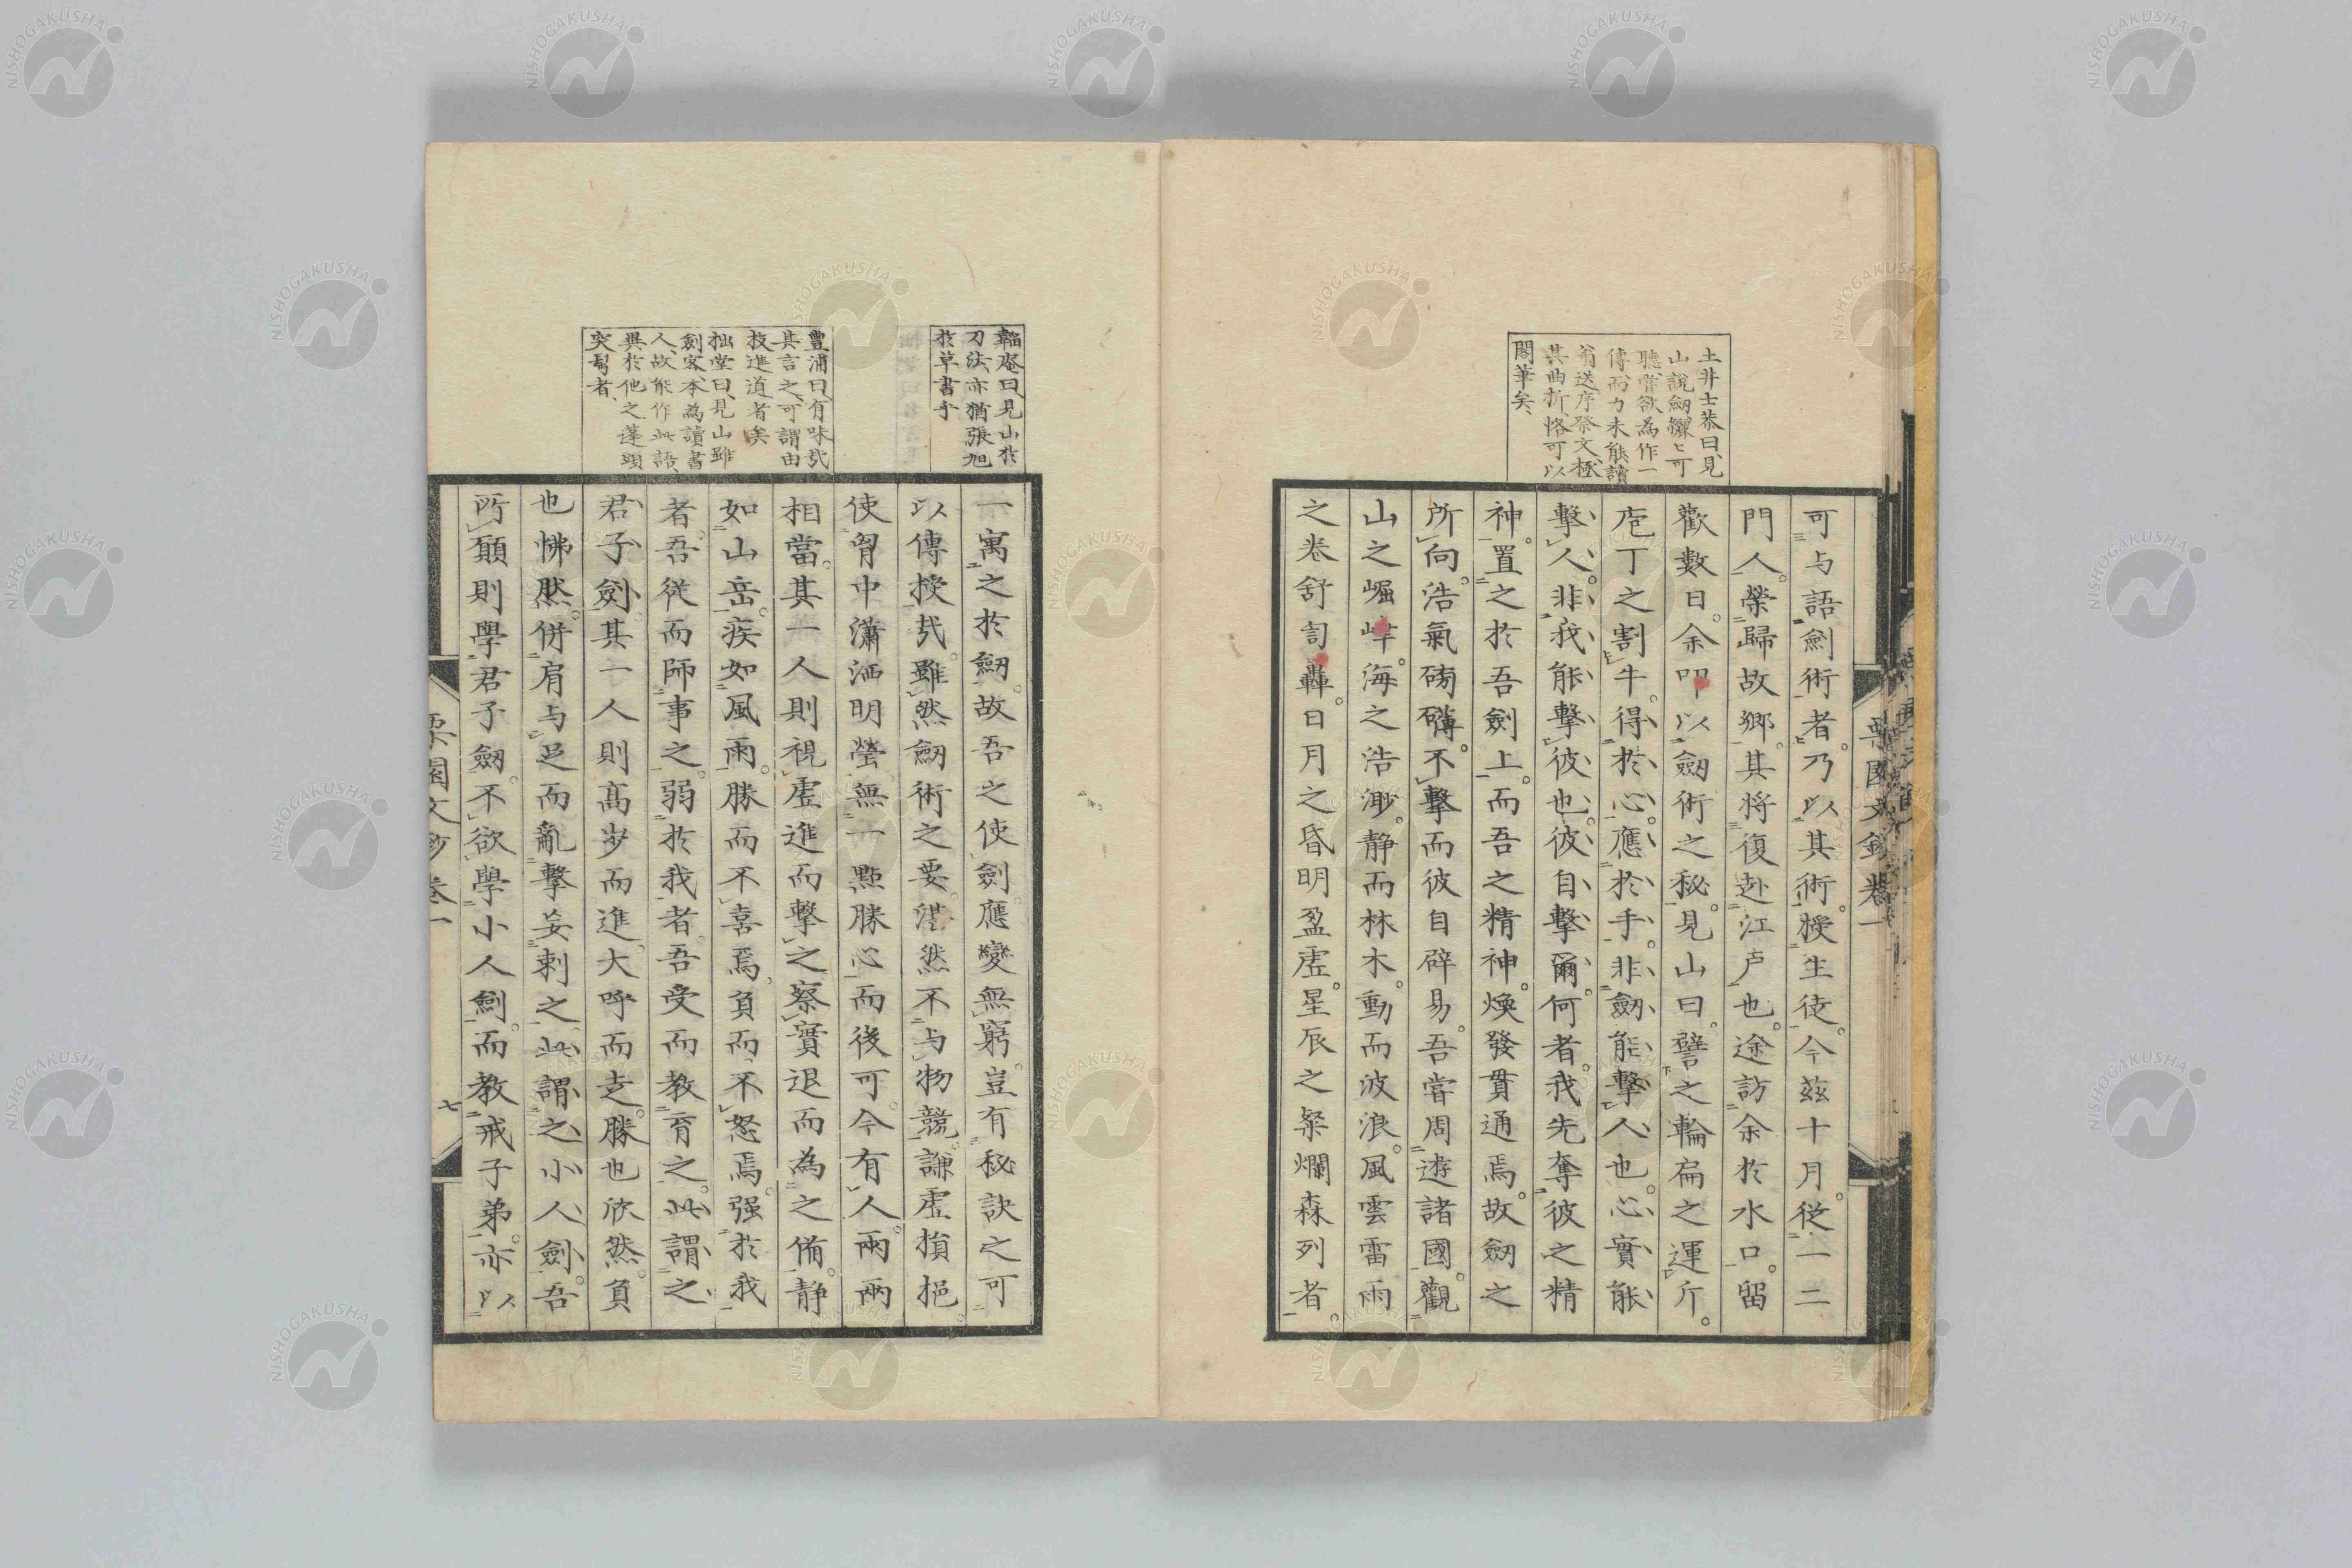 土井士恭曰、見
山說劒、爛〻可
聽、嘗欲為作一
傳、而力未能、讀
翁送序祭文、極
其曲折、恪可以
閣筆矣、
可与語劍術者。乃以其術。授生徒。今茲十月。從一二
門人。榮歸故鄉。其將復赴江戶也。途訪余於水口。留
歡數日。余叩以劒術之秘。見山曰。譬之輪扁之運斤。
庖丁之割牛。得於心。應於手。非劒能擊人也。心實能
擊人。非我能擊彼也。彼自擊爾。何者。我先奪彼之精
神。置之於吾劍上。而吾之精神。煥發貫通焉。故劒之
所向。浩氣磅礴。不擊而彼自辟易。吾嘗周遊諸國。觀
山之崛峍。海之浩渺。靜而林木。動而波浪。風雲雷雨
之卷舒訇轟。日月之昏明盈虛。星辰之粲爛森列者。
栗園文鈔 卷一
韜庵曰、見山於
刀法、亦猶張旭
於草書乎
豐浦曰、有味哉
其言之、可謂由
技進道者矣
拙堂曰、見山雖
劍客、本為讀書
人、故能作此語、
異於他之蓬頭
突鬢者、
一寓之於劒。故吾之使劍應變無窮。豈有秘訣之可
以傳授哉。雖然劒術之要。湛然不与物競。謙虛損挹
使胷中瀟洒明瑩無一點勝心而後可。今有人。兩兩
相當。其一人則視虛進而擊之。察實退而為之備。靜
如山岳。疾如風雨。勝而不喜焉。負而不怒焉。强於我
者。吾從而師事之。弱於我者。吾受而教育之。此謂之
君子劍。其一人則高步而進。大呼而走。勝也欣然。負
也怫然。併肩与足而亂擊妄刺之。此謂之小人劍。吾
所願則學君子劒。不欲學小人劍。而教戒子弟。亦以
栗園文鈔 卷一
七
NISHOGAKUSHA